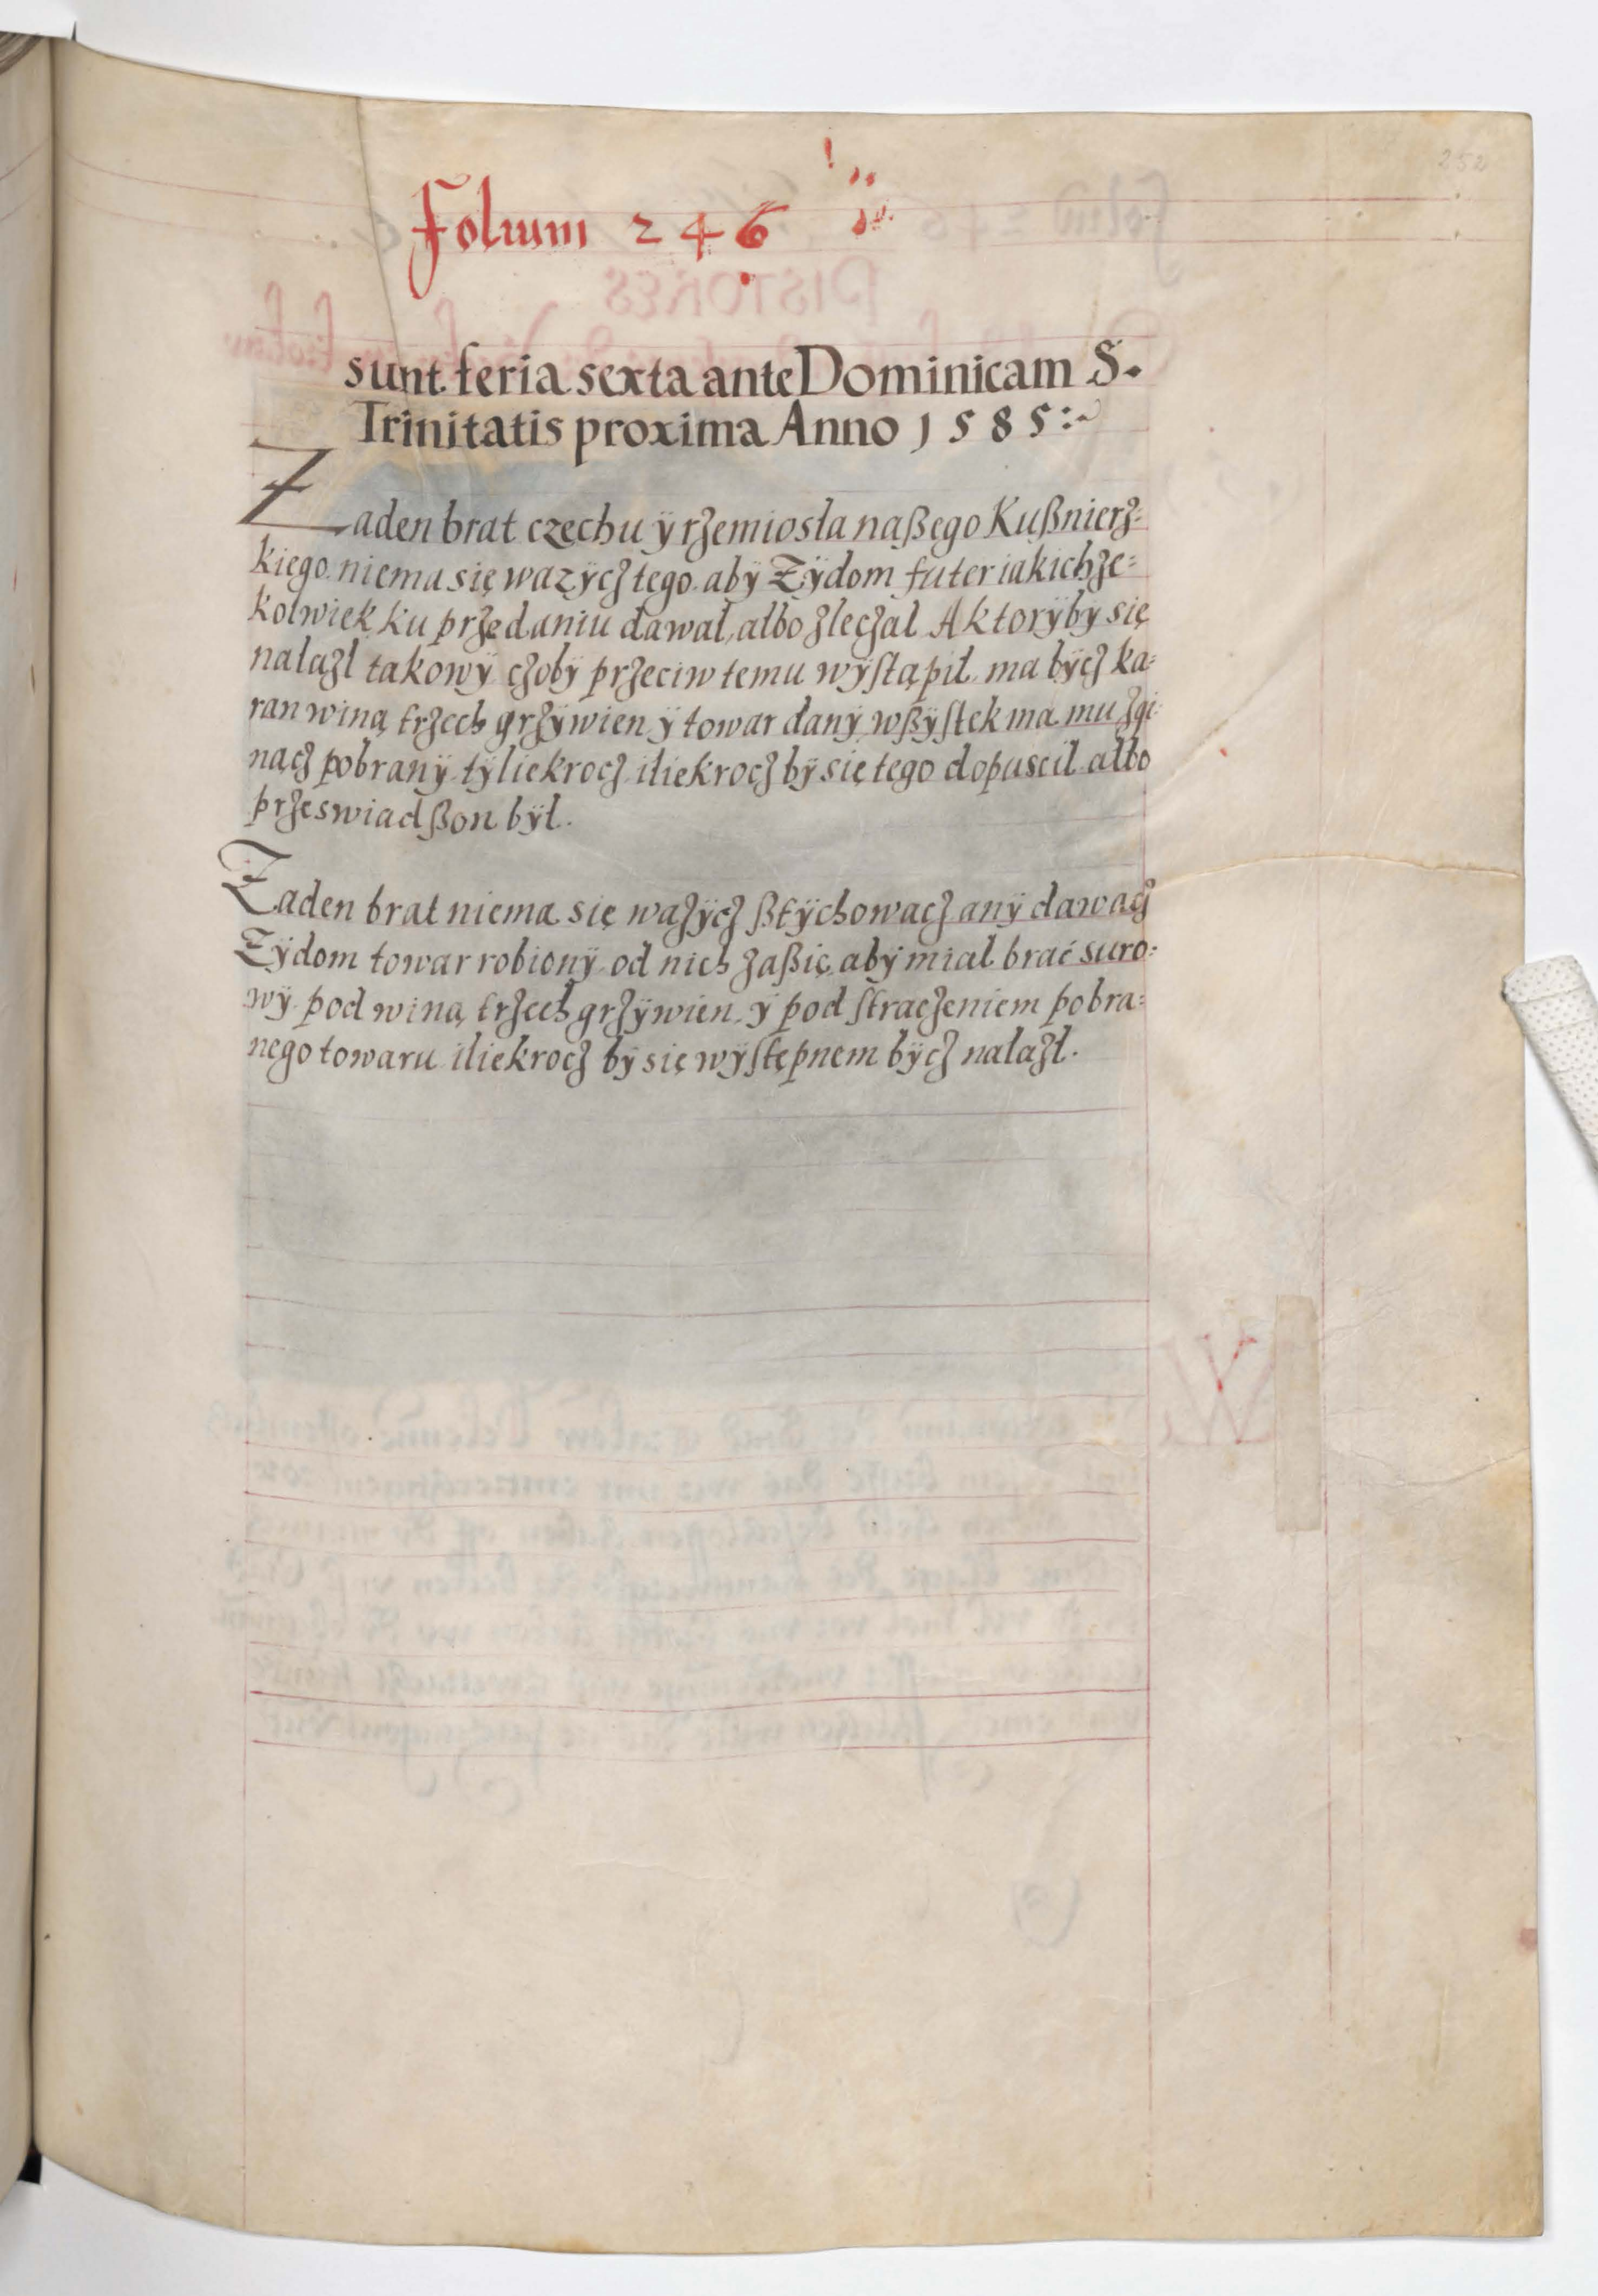 252
Folium 246
sunt feria sexta ante Dominicam S.
Trinitatis proxima Anno 1585:~
Żaden brat czechu ÿ rzemiosła naßego Kußnierz=
kiego niema się wazÿcz tego abÿ Zÿdom futer iakichze=
kolwiek ku przedaniu dawał, albo zleczał A ktorÿ bÿ się
nalazł takowÿ czobÿ przeciw temu wÿſtąpił ma bÿcz ka=
ran winą trzech grzÿwien ÿ towar danÿ wßÿſtek ma mu zgi
nącz pobranÿ tÿliekrocz iliekrocz bÿ się tego dopuscil albo
przeswiadßon bÿł.
Zaden brat niema się wazÿcz ßtÿchowacz anÿ dawacz
Zÿdom towar robionÿ od nich zaßię abÿ miał brać suro=
wÿ pod winą trzech grzÿwien ÿ pod ſtraczeniem pobra=
nego towaru iliekrocz bÿ się wÿſtępnem bÿcz nalazł.